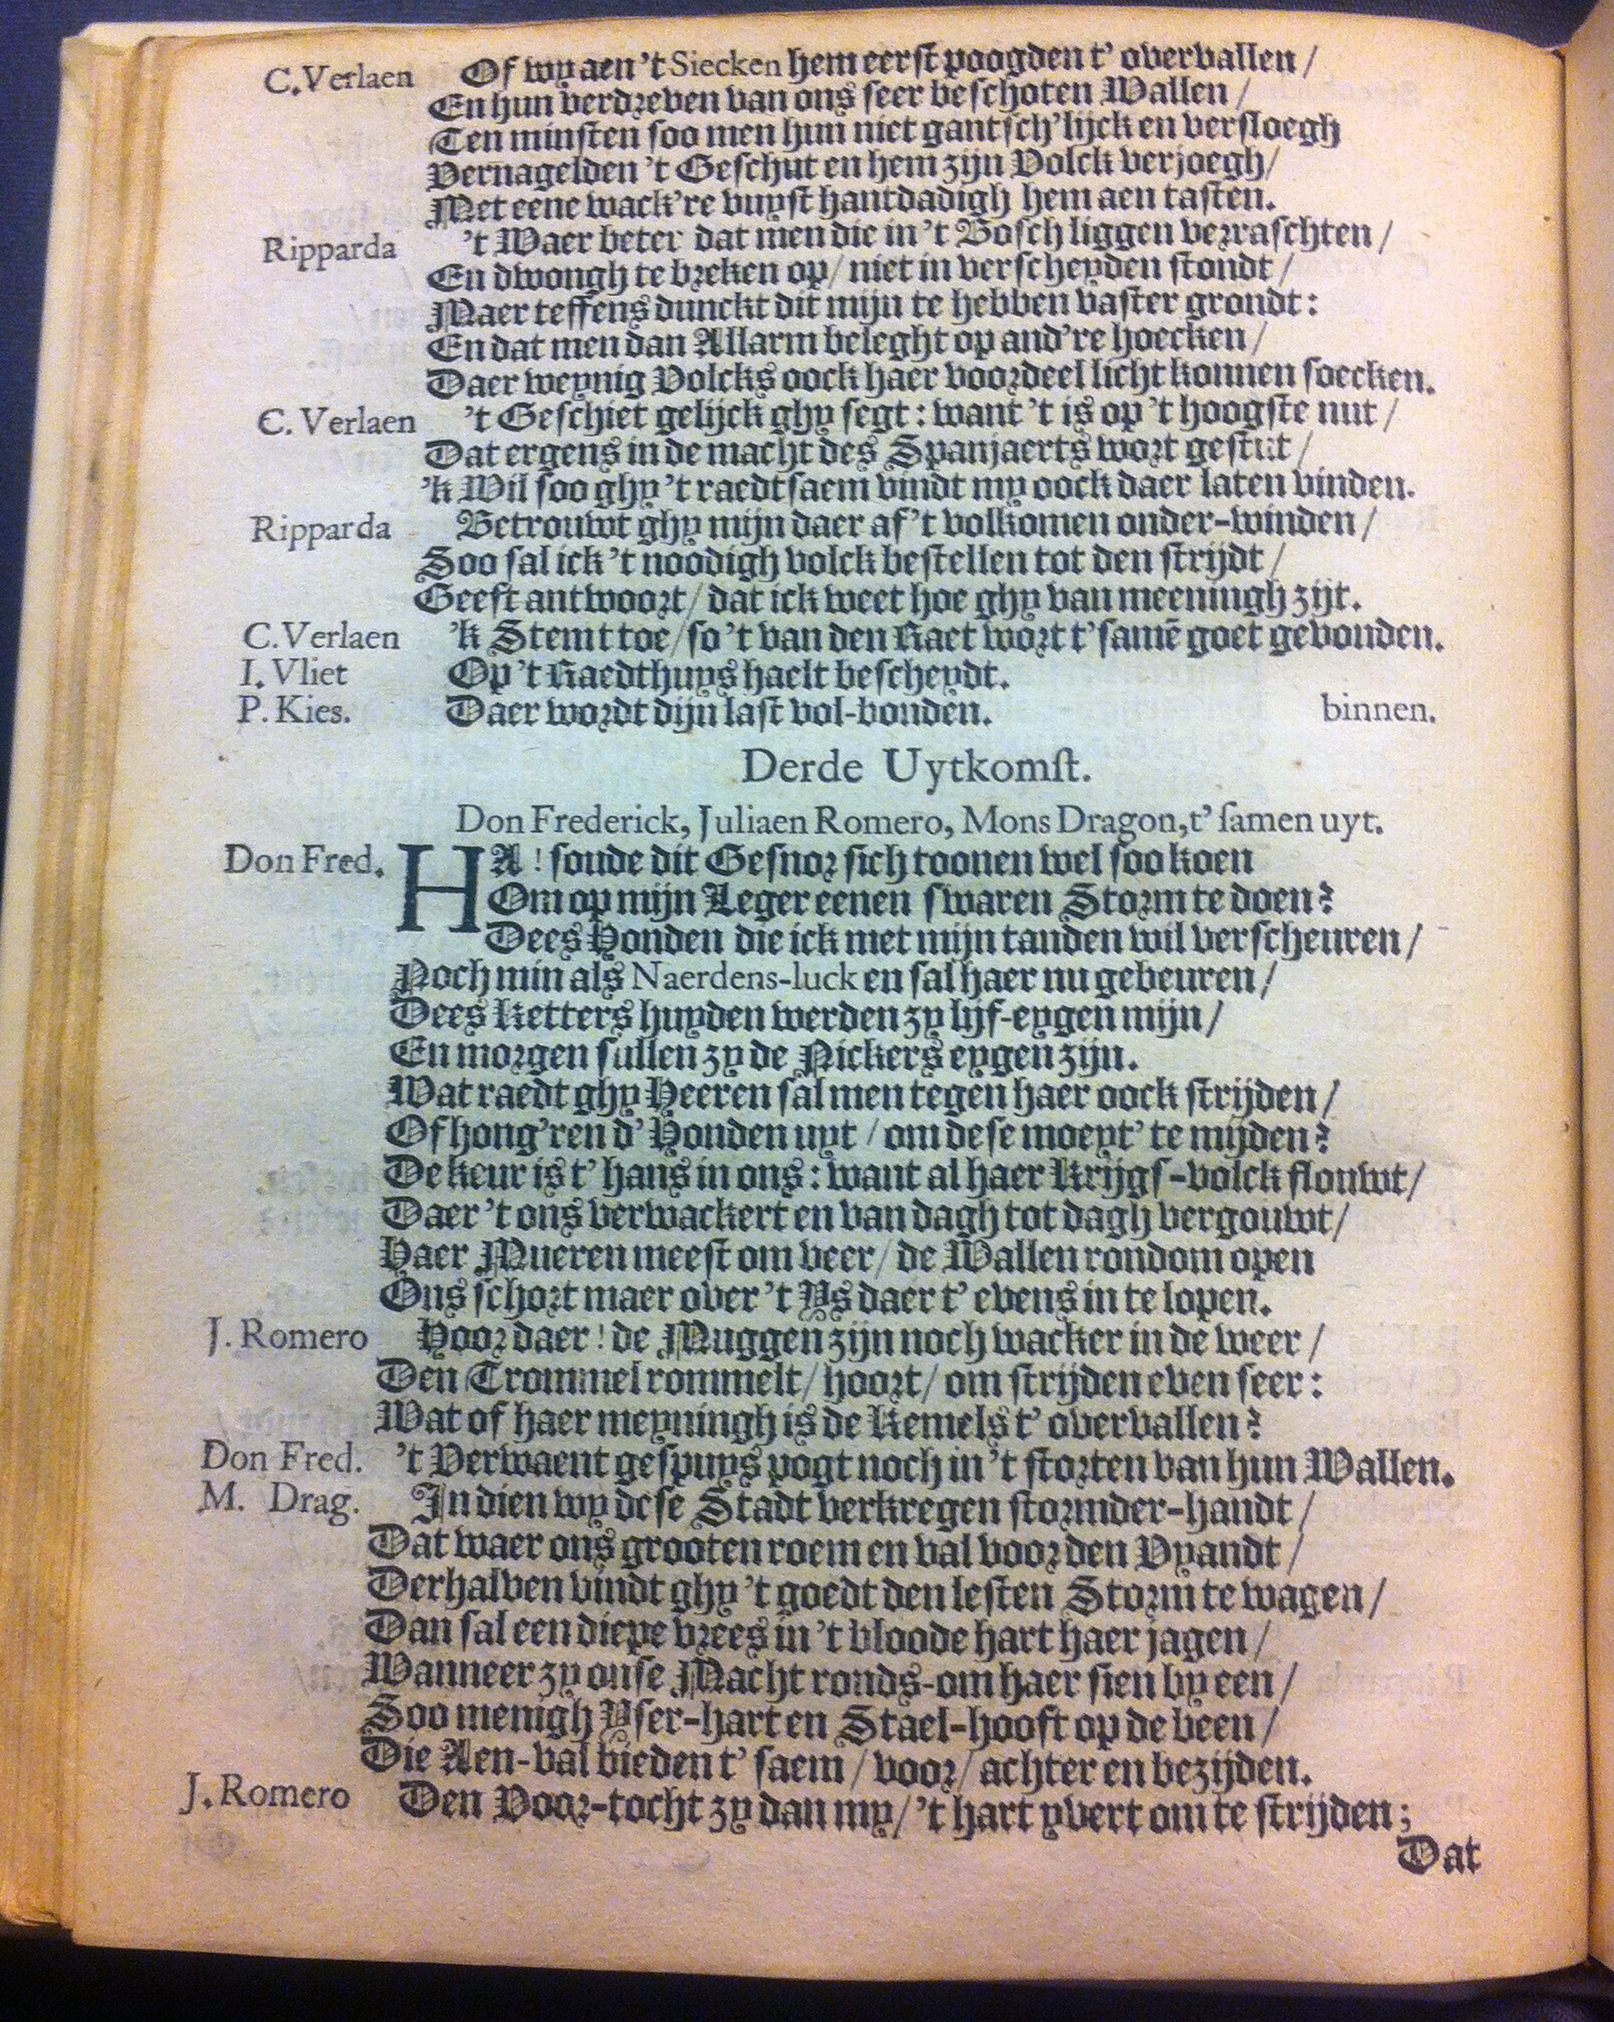 C. Verlaen Of wy aen 't Siecken hem eerst poogden t' overvallen /
En hun verdreven van ons seer beschoten Wallen /
Ten minsten soo men hun niet gantsch'lijck en versloegh
Vernagelden 't Geschut en hem zijn Volck verjoegh /
Met eene wack're vuyst hantdadigh hem aen tasten.
Ripparda 't Waer beter dat men die in 't Bosch liggen verraschten /
En dwongh te breken op / niet in verscheyden stondt /
Maer teffens dunckt dit mijn te hebben vaster grondt:
En dat men dan Allarm beleght op and're hoecken /
Daer weynig Volcks oock haer voordeel licht konnen soecken.
C. Verlaen 't Geschiet gelijck ghy segt: want 't is op 't hoogste nut /
Dat ergens in de macht des Spanjaerts wort gestut /
'k Wil soo ghy 't raedtsaem vindt my oock daer laten vinden.
Ripparda Betrouwt ghy mijn daer af 't volkomen onder-winden /
Soo sal ick 't noodigh volck bestellen tot den strijdt /
Geeft antwoort / dat ick weet hoe ghy van meeningh zijt.
C. Verlaen 'k Stemt toe / so 't van den Raet wort t' samē goet gevonden.
I. Vliet Op 't Raedthuys haelt bescheydt.
P. Kies. Daer wordt dijn last vol-bonden. binnen.
Derde Uytkomst.
Don Frederick, Juliaen Romero, Mons Dragon, t' samen uyt.
Don Fred. HA! soude dit Gesnor sich toonen wel soo koen
Om op mijn Leger eenen swaren Storm te doen?
Dees Honden die ick met mijn tanden wil verscheuren /
Noch min als Naerdens-luck en sal haer nu gebeuren /
Dees Ketters huyden werden zy lijf-eygen mijn /
En morgen sullen zy de Nickers eygen zijn.
Wat raedt ghy Heeren sal men tegen haer oock strijden /
Of hong'ren d' Honden uyt / om dese moeyt' te mijden?
De keur is t' hans in ons: want al haer Krijgs-volck flouwt /
Daer 't ons verwackert en van dagh tot dagh vergouwt /
Haer Mueren meest om veer / de Wallen rondom open
Ons schort maer over 't Ys daer t' evens in te lopen.
J. Romero Hoor daer! de Muggen zijn noch wacker in de weer /
Den Trommel rommelt / hoort / om strijden even seer:
Wat of haer meyningh is de Kemels t' overvallen?
Don Fred. 't Verwaent gespuys pogt noch in 't storten van hun Wallen.
M. Drag. In dien wy dese Stadt verkregen stormder-handt /
Dat waer ons grooten roem en val voor den Vyandt /
Derhalven vindt ghy 't goedt den lesten Storm te wagen /
Dan sal een diepe vrees in 't bloode hart haer jagen /
Wanneer zy onse Macht ronds-om haer sien by een /
Soo menigh Yser-hart en Stael-hooft op de been /
Die Aen-val bieden t' saem / voor / achter en bezijden.
J. Romero Den Voor-tocht zy dan my / 't hart yvert om te strijden;
Dat